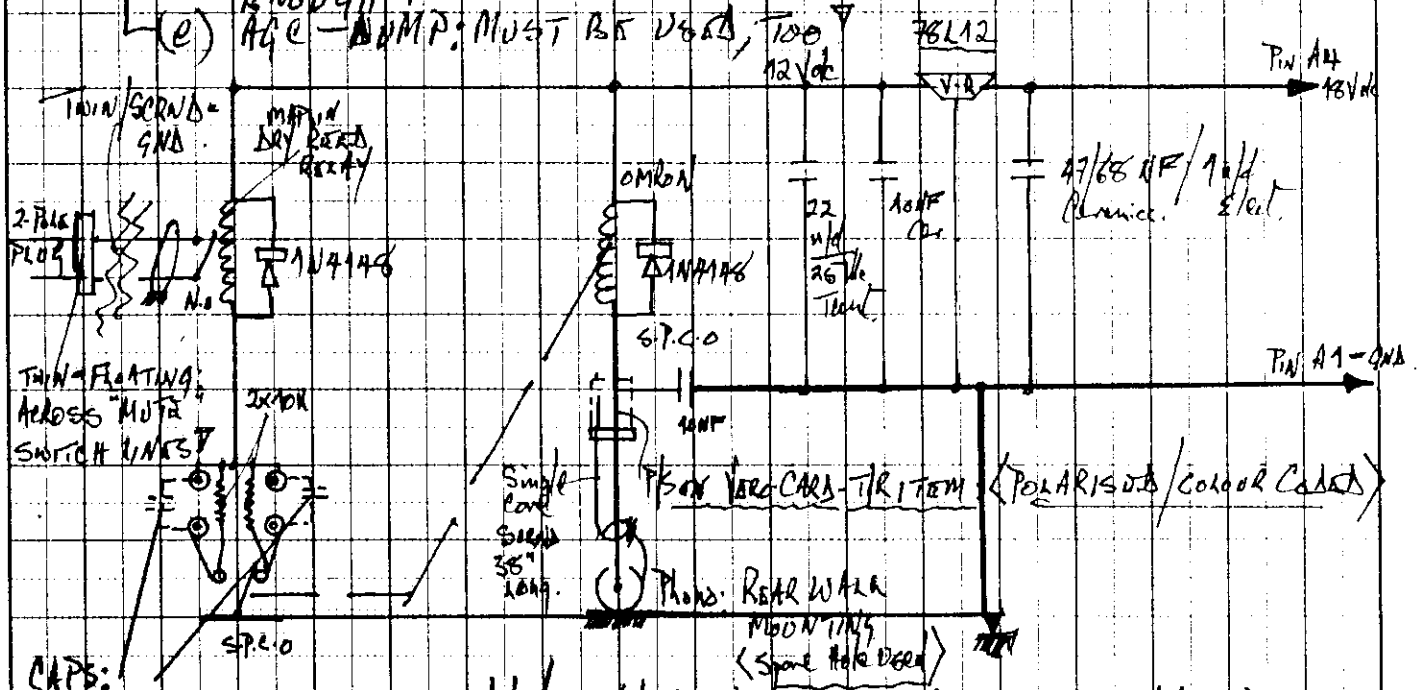 (e) AGC - DUMP: MUST BE USED, TOO
78L12
12 Vdc
V-R
PIN A4
18Vdc
TWIN/SCRND-
GND.
MAPLIN
DRY REED
RELAY
OMRON
2-POLE
PLUG
N.O
1N4148
1N4148
22
u/d
25 Vdc
Tant.
10NF
Cer
47/68 NF / 1 u/d
Ceramic. Elect.
S.P.C.O
PIN A1-GND
TWIN-FLOATING;
ACROSS "MUTE"
SWITCH LINES
2x10K
10NF
Single
Core
SCRND
38"
Long.
P/S ON VERO-CARD-T/R ITEM <POLARISED/COLOUR CODED>
Phono. REAR WALL
MOUNTING
<Spare Hole Used>
S.P.C.O
CAPS: